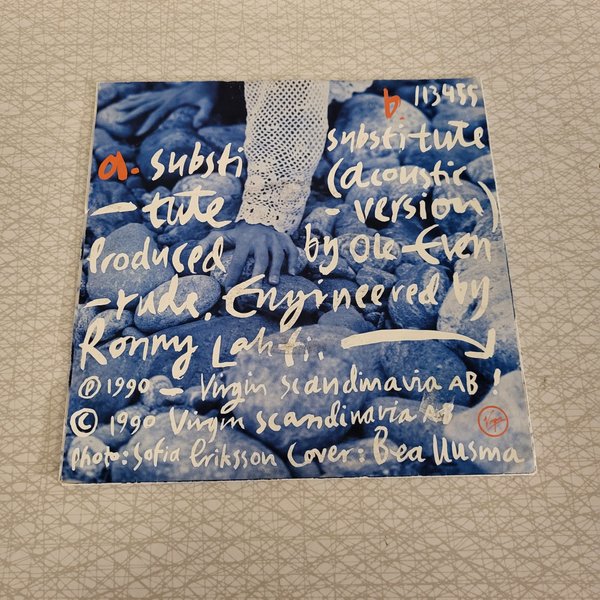 a. substi
- tute
b. 113455
substitute
(acoustic
- version)
Produced by Ole Even
- rude. Engineered by
Ronny Lahti.
℗ 1990 - Virgin Scandinavia AB !
© 1990 Virgin Scandinavia AB
Virgin
Photo: Sofia Eriksson Cover: Bea Uusma